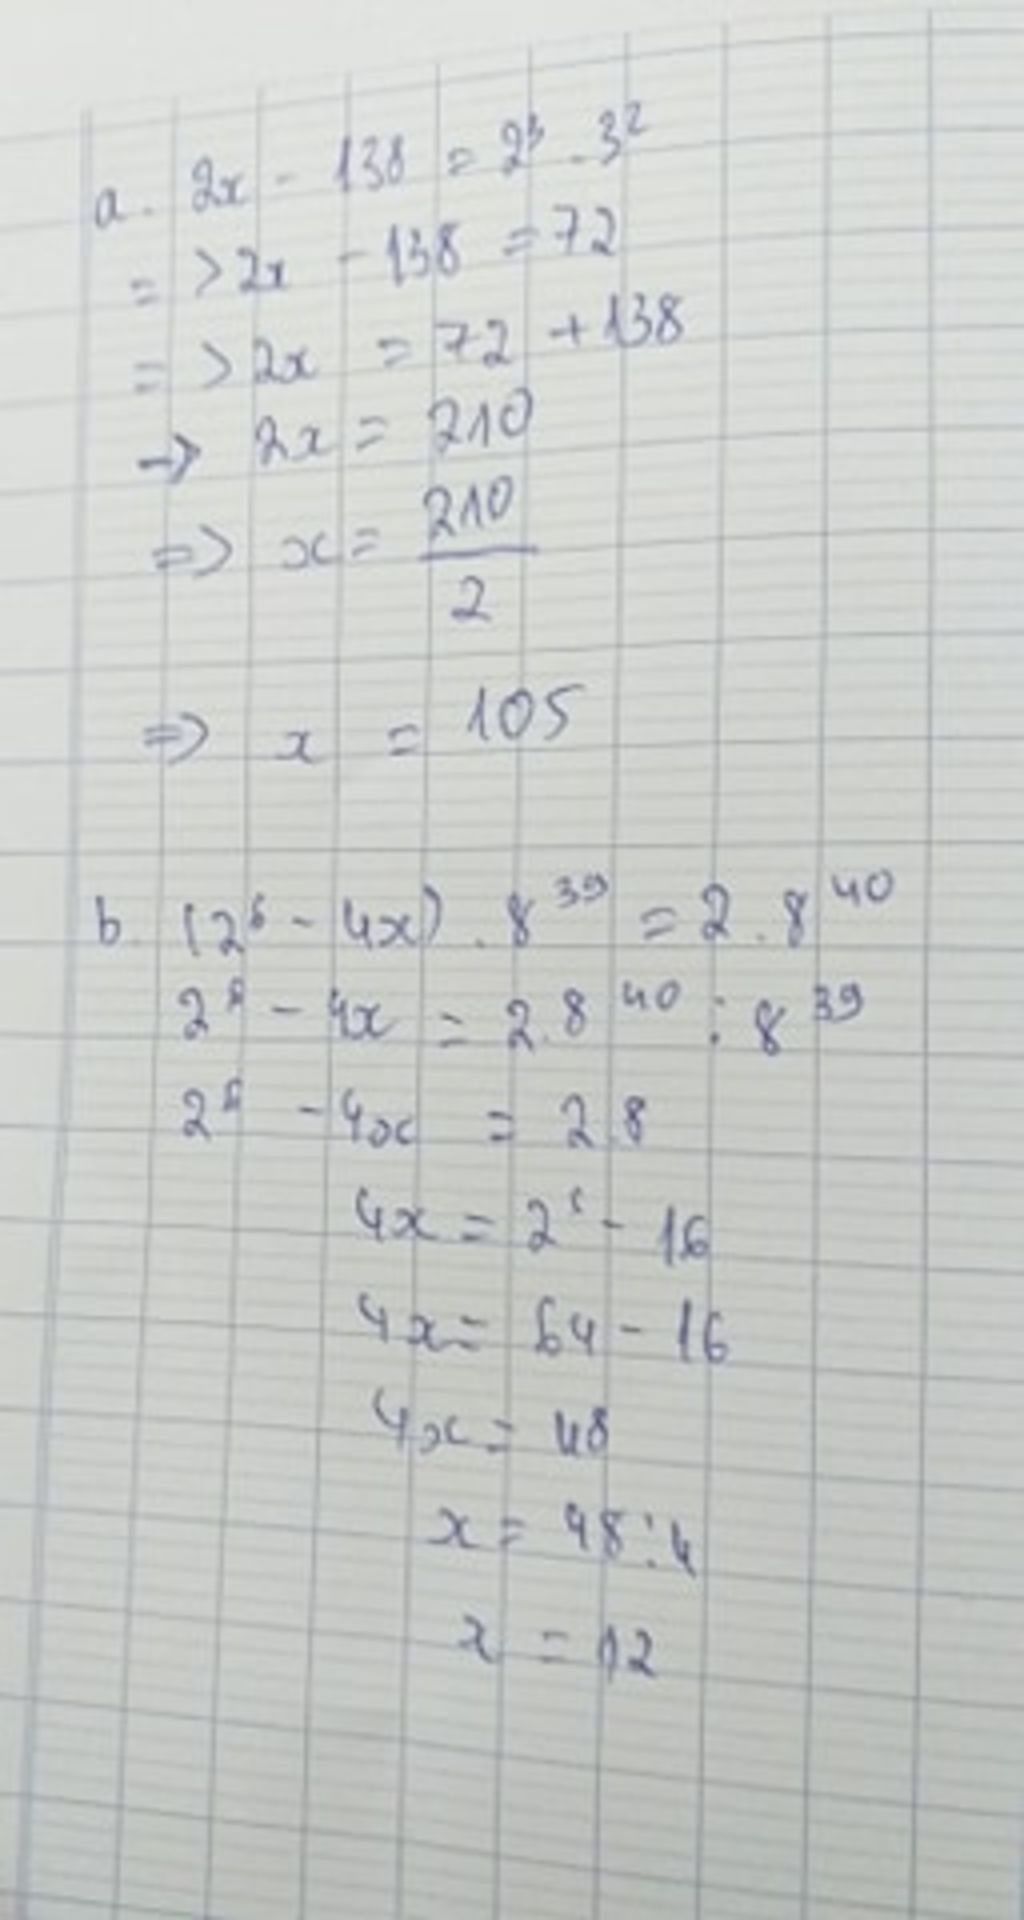 a. 2x - 138 = 2³ . 3²
=> 2x - 138 = 72
=> 2x = 72 + 138
-> 2x = 210
=> x = 210/2
=> x = 105
b. (2⁶ - 4x) . 8³⁹ = 2 . 8⁴⁰
2⁶ - 4x = 2.8⁴⁰ : 8³⁹
2⁶ - 4x = 2.8
4x = 2⁶ - 16
4x = 64 - 16
4x = 48
x = 48 : 4
x = 12